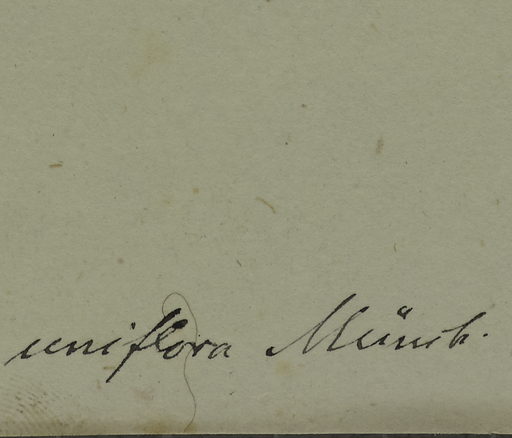 uniflora Münch.